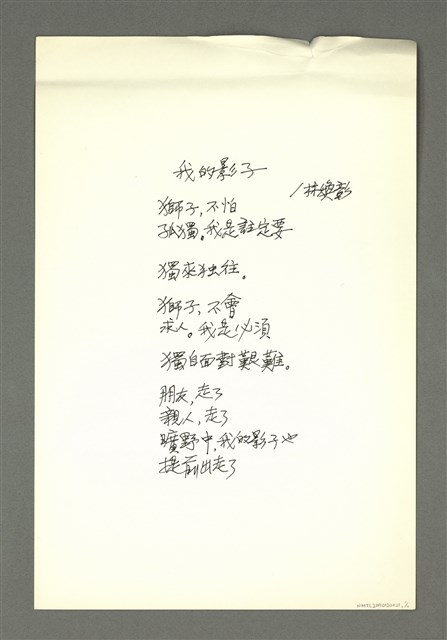 我的影子
/林煥彰
獅子,不怕
孤獨。我是註定要
獨來独往。
獅子,不會
求人。我是必須
獨自面對艱難。
朋友,走了
親人,走了
曠野中,我的影子也
提前出走了